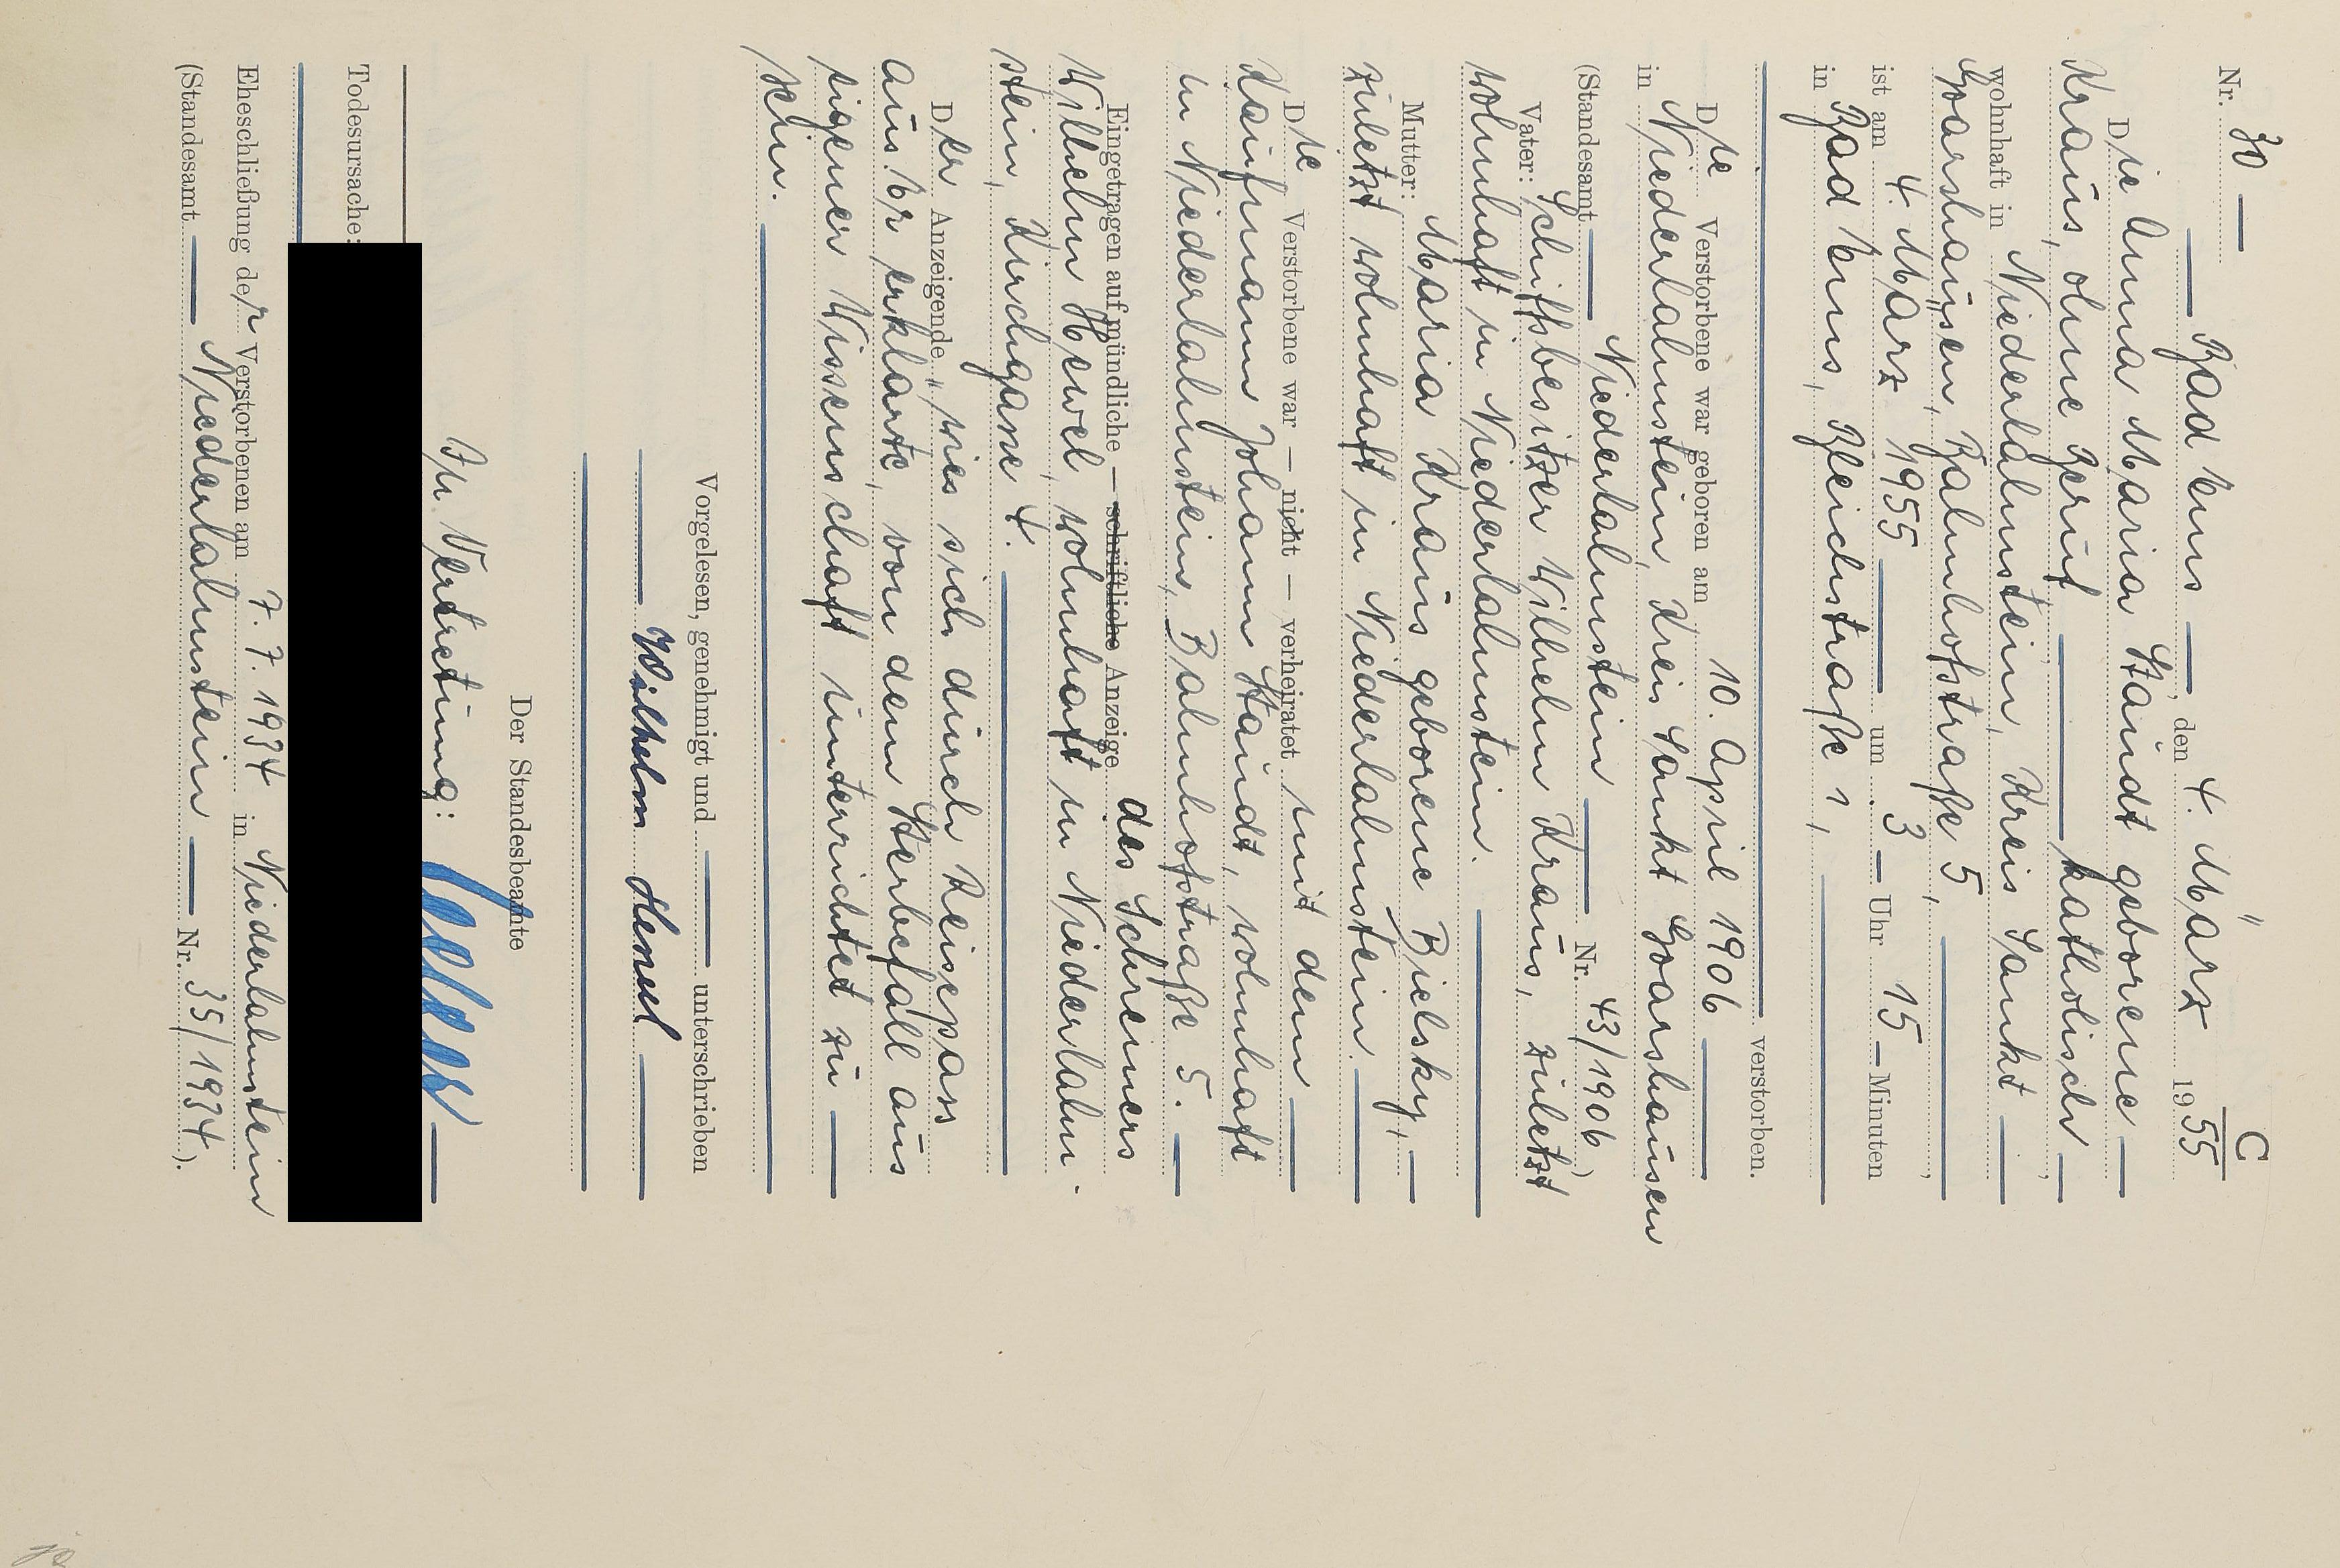 C
Nr. 30
Bad Ems, den 4. März 1955
Die Anna Maria Staudt geborene
Kraus, ohne Beruf katholisch,
wohnhaft in Niederlahnstein, Kreis Sankt
Goarshausen, Bahnhofstraße 5,
ist am 4. März 1955 um 3 Uhr 15 Minuten
in Bad Ems, Bleichstraße 1,
verstorben.
Die Verstorbene war geboren am 10. April 1906
in Niederlahnstein, Kreis Sankt Goarshausen
(Standesamt Niederlahnstein Nr. 43/1906)
Vater: Schiffsbesitzer Wilhelm Kraus, zuletzt
wohnhaft in Niederlahnstein.
Mutter: Maria Kraus geborene Bielsky,
zuletzt wohnhaft in Niederlahnstein.
Die Verstorbene war — nicht — verheiratet mit dem
Kaufmann Johann Staudt, wohnhaft
in Niederlahnstein, Bahnhofstraße 5.
Eingetragen auf mündliche — schriftliche Anzeige des Schreiners
Wilhelm Hewel, wohnhaft in Niederlahn-
stein, Kirchgasse 4.
Der Anzeigende wies sich durch Reisepass
aus. Er erklärte, von dem Sterbefall aus
eigener Wissenschaft unterrichtet zu
sein.
Vorgelesen, genehmigt und unterschrieben
Wilhelm Hewel
Der Standesbeamte
In Vertretung:
Todesursache:
Eheschließung der Verstorbenen am 7. 7. 1934 in Niederlahnstein
(Standesamt Niederlahnstein Nr. 35/1934).